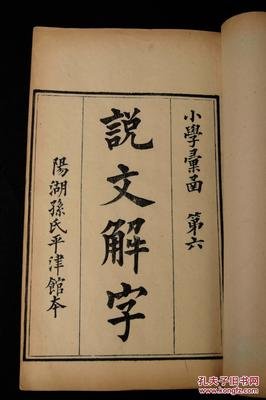 小學彙函 第六
說文解字
陽湖孫氏平津館本
孔夫子旧书网